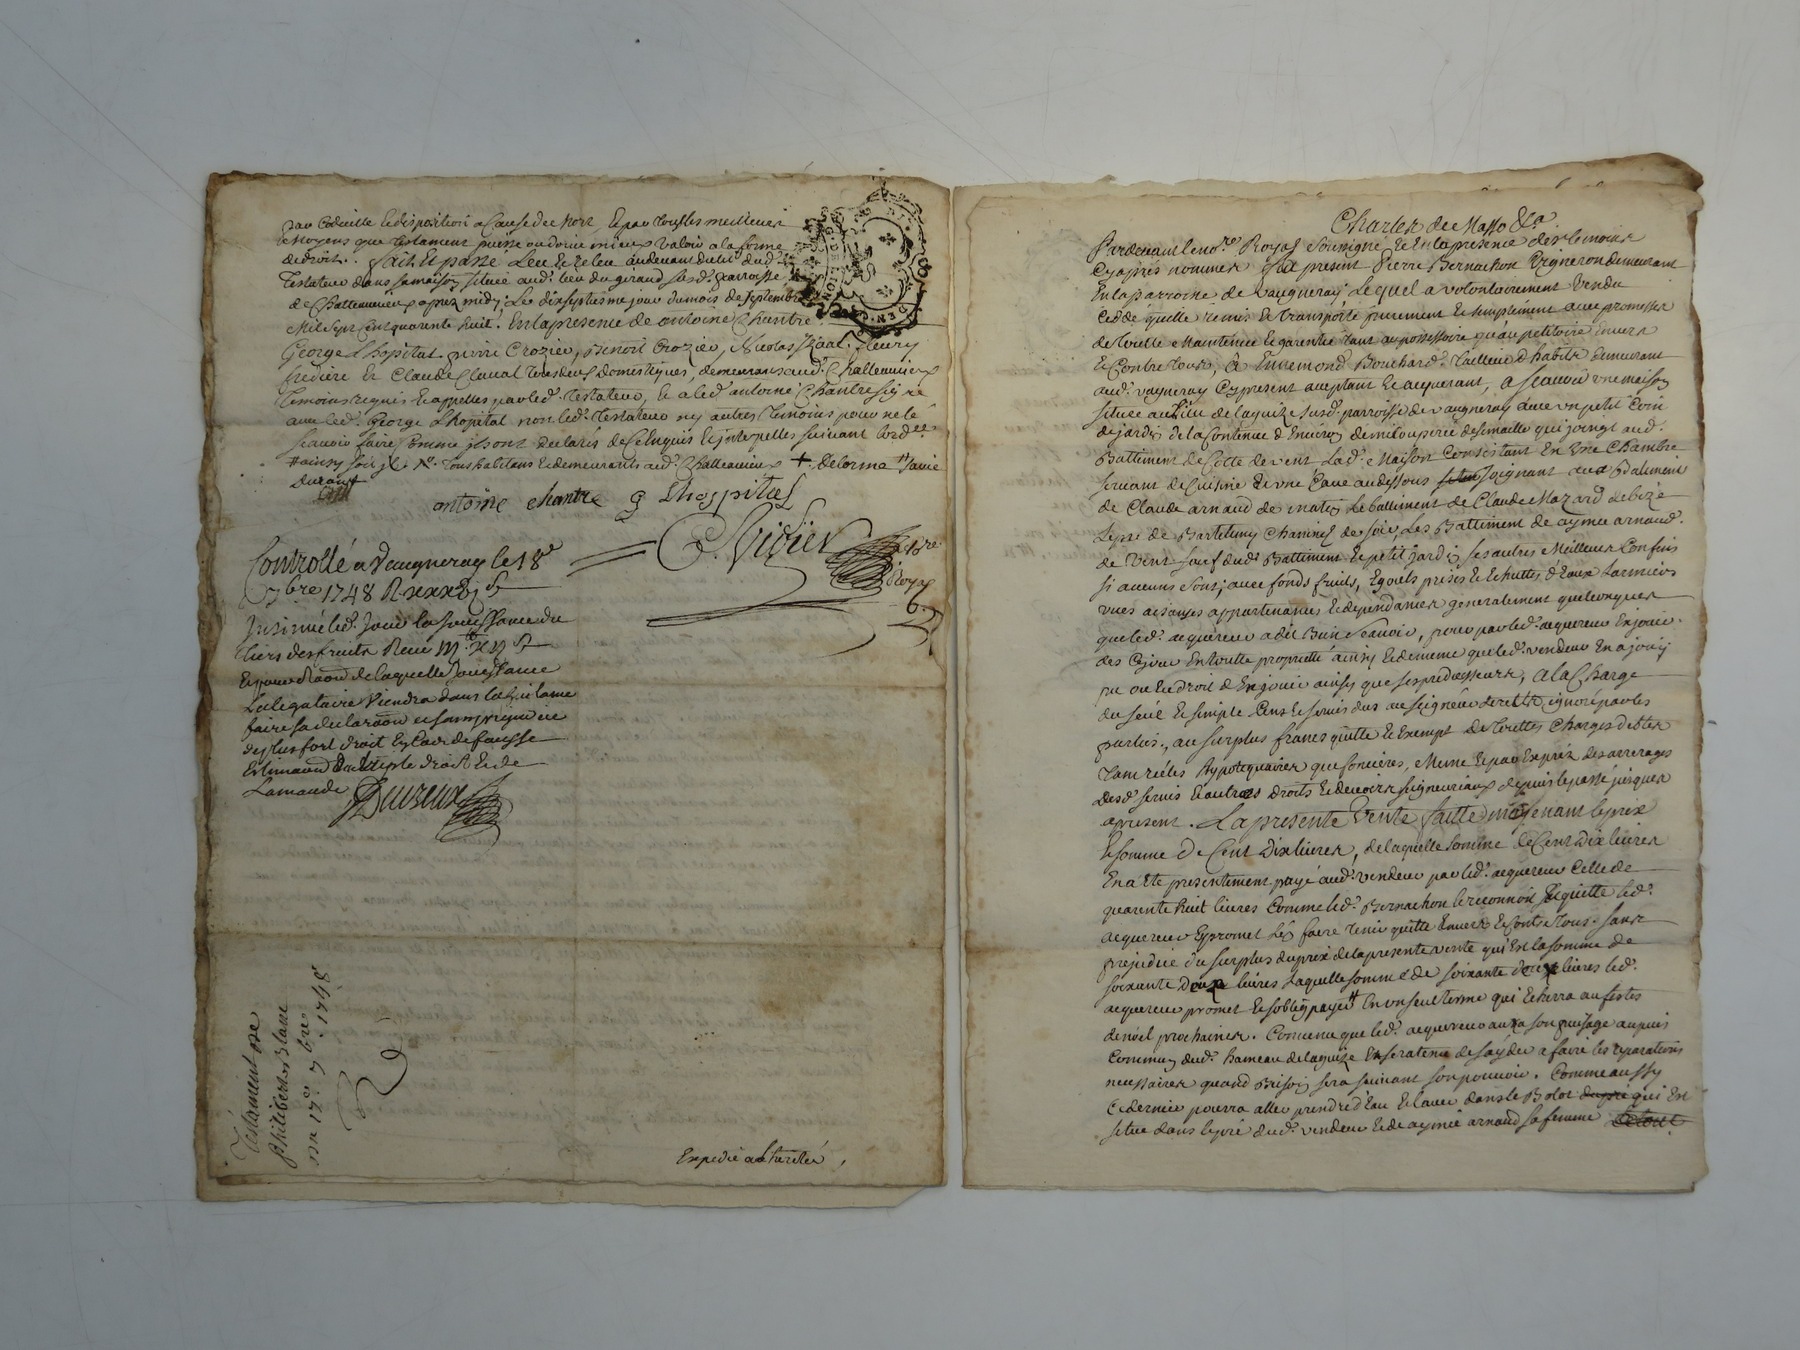 par Codicille et disposition a Cause de Mort, Et par tous les meilleurs
Moyens que testament puisse ou doive mieux Valoir a la forme
de droit. fait et passé Leu et releu audevant du lit dud.
Testateur dans sa maison située aud. lieu du giraud susd. parroisse
de Chatteauvieux apres midy, Le dixseptieme jour du mois de septembre
Mil Sept Cent quarente huit. En la presence de antoine Chantre
George Lhopital pierre Crozier, Benoit Crozier, Nicolas fleury
et Claude Claval tous deux domestiques, demeurans aud. Chatteauvieux
temoins requis et appellés par led. Testateur, Et a led. antoine Chantre signé
avec led. George Lhopital non led. Testateur ny autres temoins pour ne le
scavoir faire Comme ils ont declarés de Ce Enquis et interpellés suivant lordce
tous habitans et demeurants aud. Chatteauvieux + delorme
antoine chantre g Lhospital
Controllé a Vaugneray le 18e
7bre 1748 R
Insinué led. Jour la jouissance du
tiers des fruits Receu
de laquelle Jouissance
La legataire Viendra dans
faire sa declaraon
de plus fort droit En Cas de fausse
Estimaon du triple droit Et de
Lamande
Royaf
Testament de
Philibert Blanc
du 17e 7bre 1748
Expedié
Charles de Masso &ca
Pardevant le nore Royal Soussigné et En la presence des temoins
Cy après nommés fut present Pierre Bernachon Vigneron demeurant
En la parroisse de Vaugneray Lequel a volontairement Vendu
Cedé quitté remis Et transporté purement Et simplement avec promesse
de toutte Maintenue Et garentie tant au possessoire qu'au petitoire Envers
Et Contre tous, A Ennemond Bouchard Tailleur d'habits demeurant
aud. vaugneray Cy present acceptant Et acquerant, a scavoir une maison
située au lieu de laquize susd. parroisse de vaugneray avec un petit Coin
de jardin de la Contenue d'Environ demi Couperée de semaille qui joingt aud.
Battiment de Cotte de vent Lad. Maison Consistant En Une Chambre
servant de Cuisine Et une Cave au dessous joignant aux Batiment
de Claude arnaud de matin Le battiment de Claude Mazard de bize
Le pré de Bartelemy de soir, Les Battiment de aymée arnaud
de Vent sauf dud. Battiment Et petit Jardin ses autres Meilleurs Confins
si aucuns sont; avec fonds fruits, Egouts prises Et Chuttes d'Eaux Larmiers
vues aisances appartenances Et dependances generalement quelconques
que led. acquereur a dit Bien scavoir, pour par led. acquereur En jouir
des Cy jour En toutte proprietté ainsy Et de meme que led. vendeur En a jouy
pu ou Eu droit d'En jouir ainsy que ses predecesseurs, a la Charge
du seul Et simple Cens Et servis dus au seigneur ignoré par les
parties, au surplus francs quitte Et Exempt de touttes Charges debtes
tant réeles hypotequaires que foncieres, Meme Et par Exprès des arrerages
desd. servis Et autres droits Et devoirs seigneuriaux depuis le passé jusques
apresent. La presente Vente faitte moyenant le prix
Et somme de Cent Dix livres, de laquelle somme de Cent Dix livres
En a Eté presentement payé aud. vendeur par led. acquereur Celle de
quarente huit livres Comme led. Bernachon le reconnoit Et quitte led.
acquereur Et promet Len faire tenir quitte Envers Et Contre tous. sans
prejudice du surplus du prix de la presente vente qui Est la somme de
soixante Deux livres Laquelle somme de soixante deux livres led.
acquereur promet Et soblige payer En un seul terme qui Echerra au festes
de noel prochaines. Convenu que led. acquereur aura son puisage au puis
Commun dud. hameau de laquize En sera tenu de s'ayder a faire les reparations
necessaires quand Besoin sera suivant son pouvoir. Comme aussy
Ce dernier pourra aller prendre d'Eau Et laver dans le Botot qui Est
situé dans le pré dud. vendeur Et de aymée arnaud sa femme